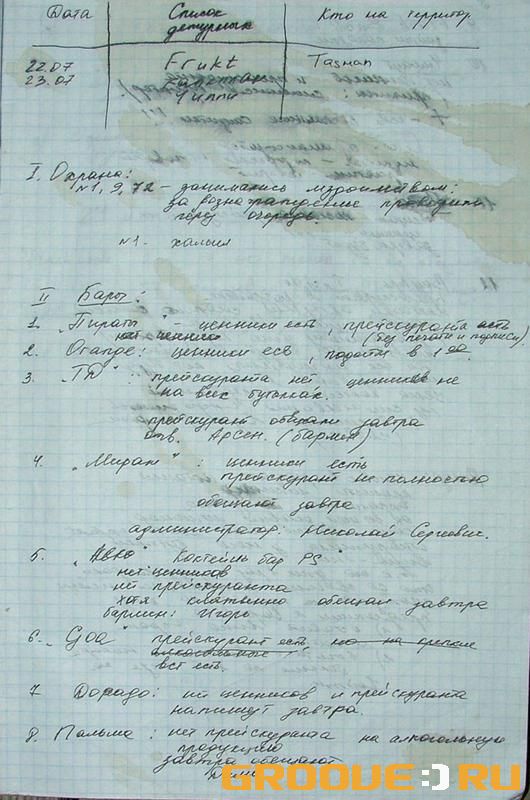 Дата Список дежурных Кто на территор.
22.07 Frukt Tasman
23.07 Капитан
Чиппи
I. Охрана:
№1, 9, 72 - занимались мздоимством:
за вознаграждение проводили
через очередь.
№1 - халил
II Бары:
1. "Пираты" - ценники есть, прейскуранта есть
нет ценник (без печати и подписи)
2. Orange: ценники есв, подойти в 1 00.
3. "ТД": прейскуранта нет, ценники не
на всех бутылках.
прейскурант обещали завтра
отв. Арсен. (бармен)
4. "Мираж": ценники есть
прейскурант не полностью
обещают завтра
администратор: Николай Сергеевич.
5. "Авко" коктейль бар PS"
нет ценников
нет прейскуранта
хотя клятвенно обещали завтра
бармен: Игорь
6. "Goa" прейскурант есть, но на крепкие
алкогольные
всё есть.
7. Дорадо: нет ценников и прейскуранта
напишут завтра.
8. Пальма: нет прейскуранта на алкогольную
продукцию
завтра обещают
GROOVE:RU